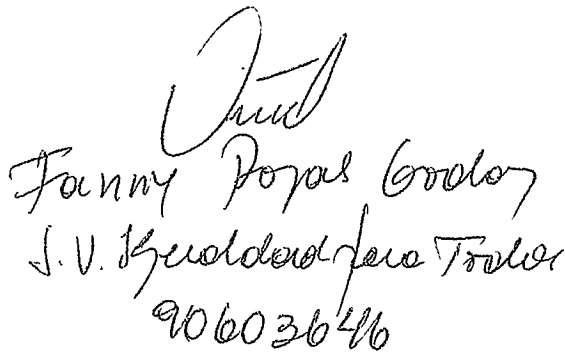 Fanny Rojas Godoy
J.V. Igualdad para Todos
90603646